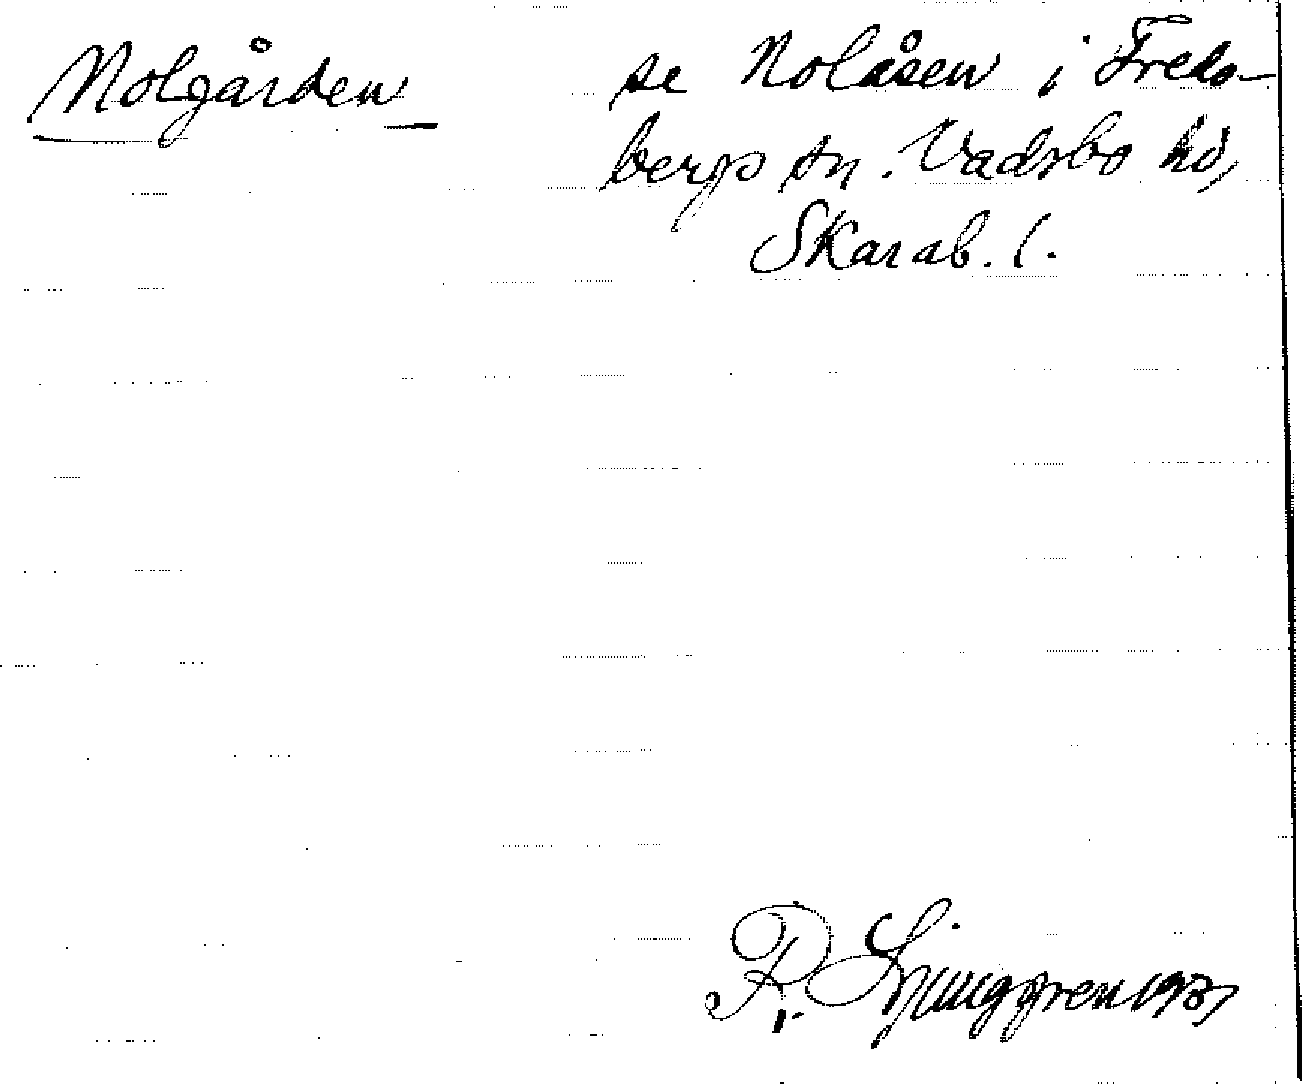 Nolgården
se Nolåsen i Freds-
bergs sn. Vadsbo hd,
Skarab. l.
R. Ljunggren 1931